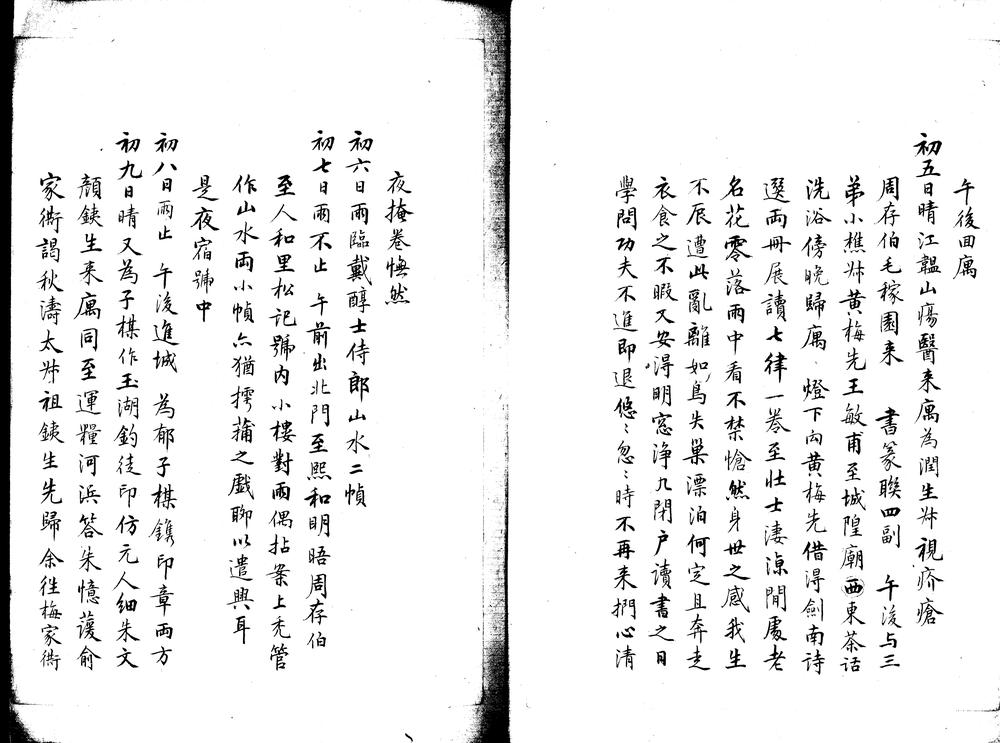 午後回寓
初五日晴江韞山瘍醫来寓為潤生㳙視疥瘡
周存伯毛稼圃来　書篆聯四副　午後与三
弟小樵㳙黄梅先王敏甫至城隍廟西東茶话
洗浴傍晚歸寓　燈下向黄梅先借得劍南诗
選兩冊展讀七律一卷至壮士淒凉閒處老
名花零落雨中看不禁愴然身世之感我生
不辰遭此亂離如鳥失巢漂泊何定且奔走
衣食之不暇又安得明窓淨几閉户讀書之日
學問功夫不進即退悠〻忽〻時不再来捫心清
夜掩卷憮然
初六日雨臨戴醇士侍郎山水二幀
初七日雨不止　午前出北門至熙和明晤周存伯
至人和里松记號内小樓對雨偶拈案上禿管
作山水兩小幀亦猶摴蒱之戲聊以遣興耳
是夜宿號中
初八日雨止　午後進城　為郁子楳鐫印章兩方
初九日晴又為子楳作玉湖釣徒印仿元人细朱文
顏銕生来寓同至運糧河浜答朱憶蘐俞
家衖謁秋濤太㳙祖銕生先歸余往梅家衖